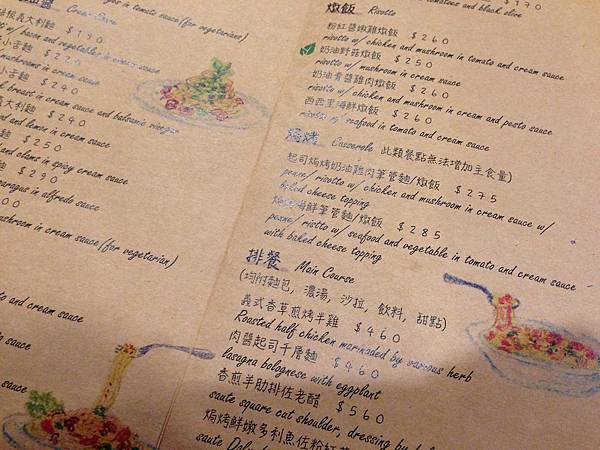 Cream Base
ingers in tomato sauce (for vegetarians)
培根義大利麵 $190
w/ bacon and vegetable in cream sauce
小舌麵 $220
mushrooms in cream sauce
麵 $240
breast in cream sauce and balsamic vinegar
義大利麵 $240
and lemon in cream sauce
麵 $250
and clams in spicy cream sauce
麵 $290
asparagus in alfredo sauce
mushroom in cream sauce (for vegetarian)
to and cream sauce
sauce
sauce
tomatoes and black olive
$170
燉飯 Risotto
粉紅醬嫩雞燉飯 $260
risotto w/ chicken and mushroom in tomato and cream sauce
奶油野菇燉飯 $250
risotto w/ mushroom in cream sauce
奶油青醬雞肉燉飯 $260
risotto w/ chicken and mushroom in cream and pesto sauce
西西里海鮮燉飯 $260
risotto w/ seafood in tomato and cream sauce
焗烤 Casserole 此類餐點無法增加主食量)
起司焗烤奶油雞肉筆管麵/燉飯 $275
penne/ risotto w/ chicken and mushroom in cream sauce w/
baked cheese topping
焗烤海鮮筆管麵/燉飯 $285
penne/ riotto w/ seafood and vegetable in tomato and cream sauce
with baked cheese topping
排餐 Main Course
(均附麵包, 濃湯, 沙拉, 飲料, 甜點)
義式香草煎烤半雞 $460
Roasted half chicken marinaded by various herb
肉醬起司千層麵 $460
lasagna bolognese with eggplant
香煎羊肋排佐老醋 $560
saute square cut shoulder, dressing by
焗烤鮮嫩多利魚佐粉紅
saute